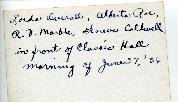 Lordai Averall, Alberta Roe,
R. D. Marble, Seneva Caldwell
in front of Classic Hall
morning of June 27, '36